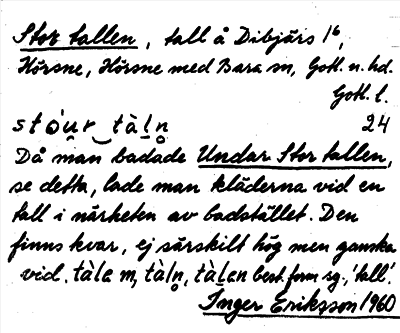 Stor tallen, tall å Dibjärs 1⁶,
Hörsne, Hörsne med Bara sn, Gotl. n. hd.
Gotl. l.
stọ́u̯r‿tàl̥n̥ 24
Då man badade Undar Stor tallen,
se detta, lade man kläderna vid en
tall i närheten av badstället. Den
finns kvar, ej särskilt hög men ganska
vid. tàlа m, tàl̥n̥, tàlen best. form sg., 'tall'.
Inger Eriksson 1960